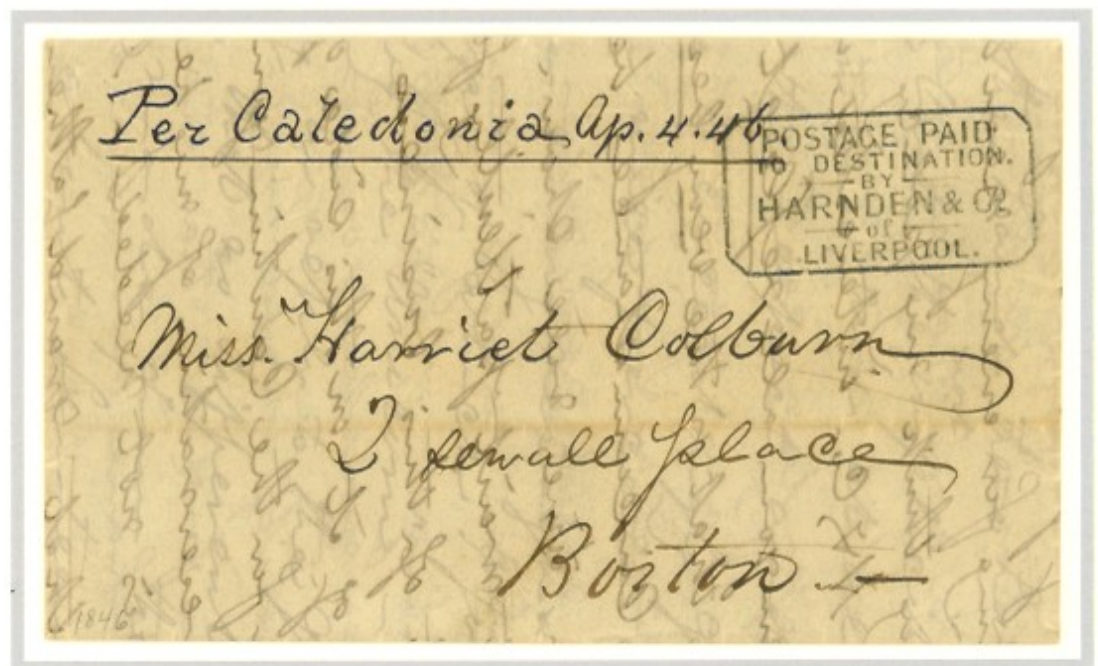 Per Caledonia Ap. 4. 46.
POSTAGE PAID
TO DESTINATION.
BY
HARNDEN & Co
of
LIVERPOOL.
Miss. Harriet Colburn
2 Sewall place
Boston —
1846